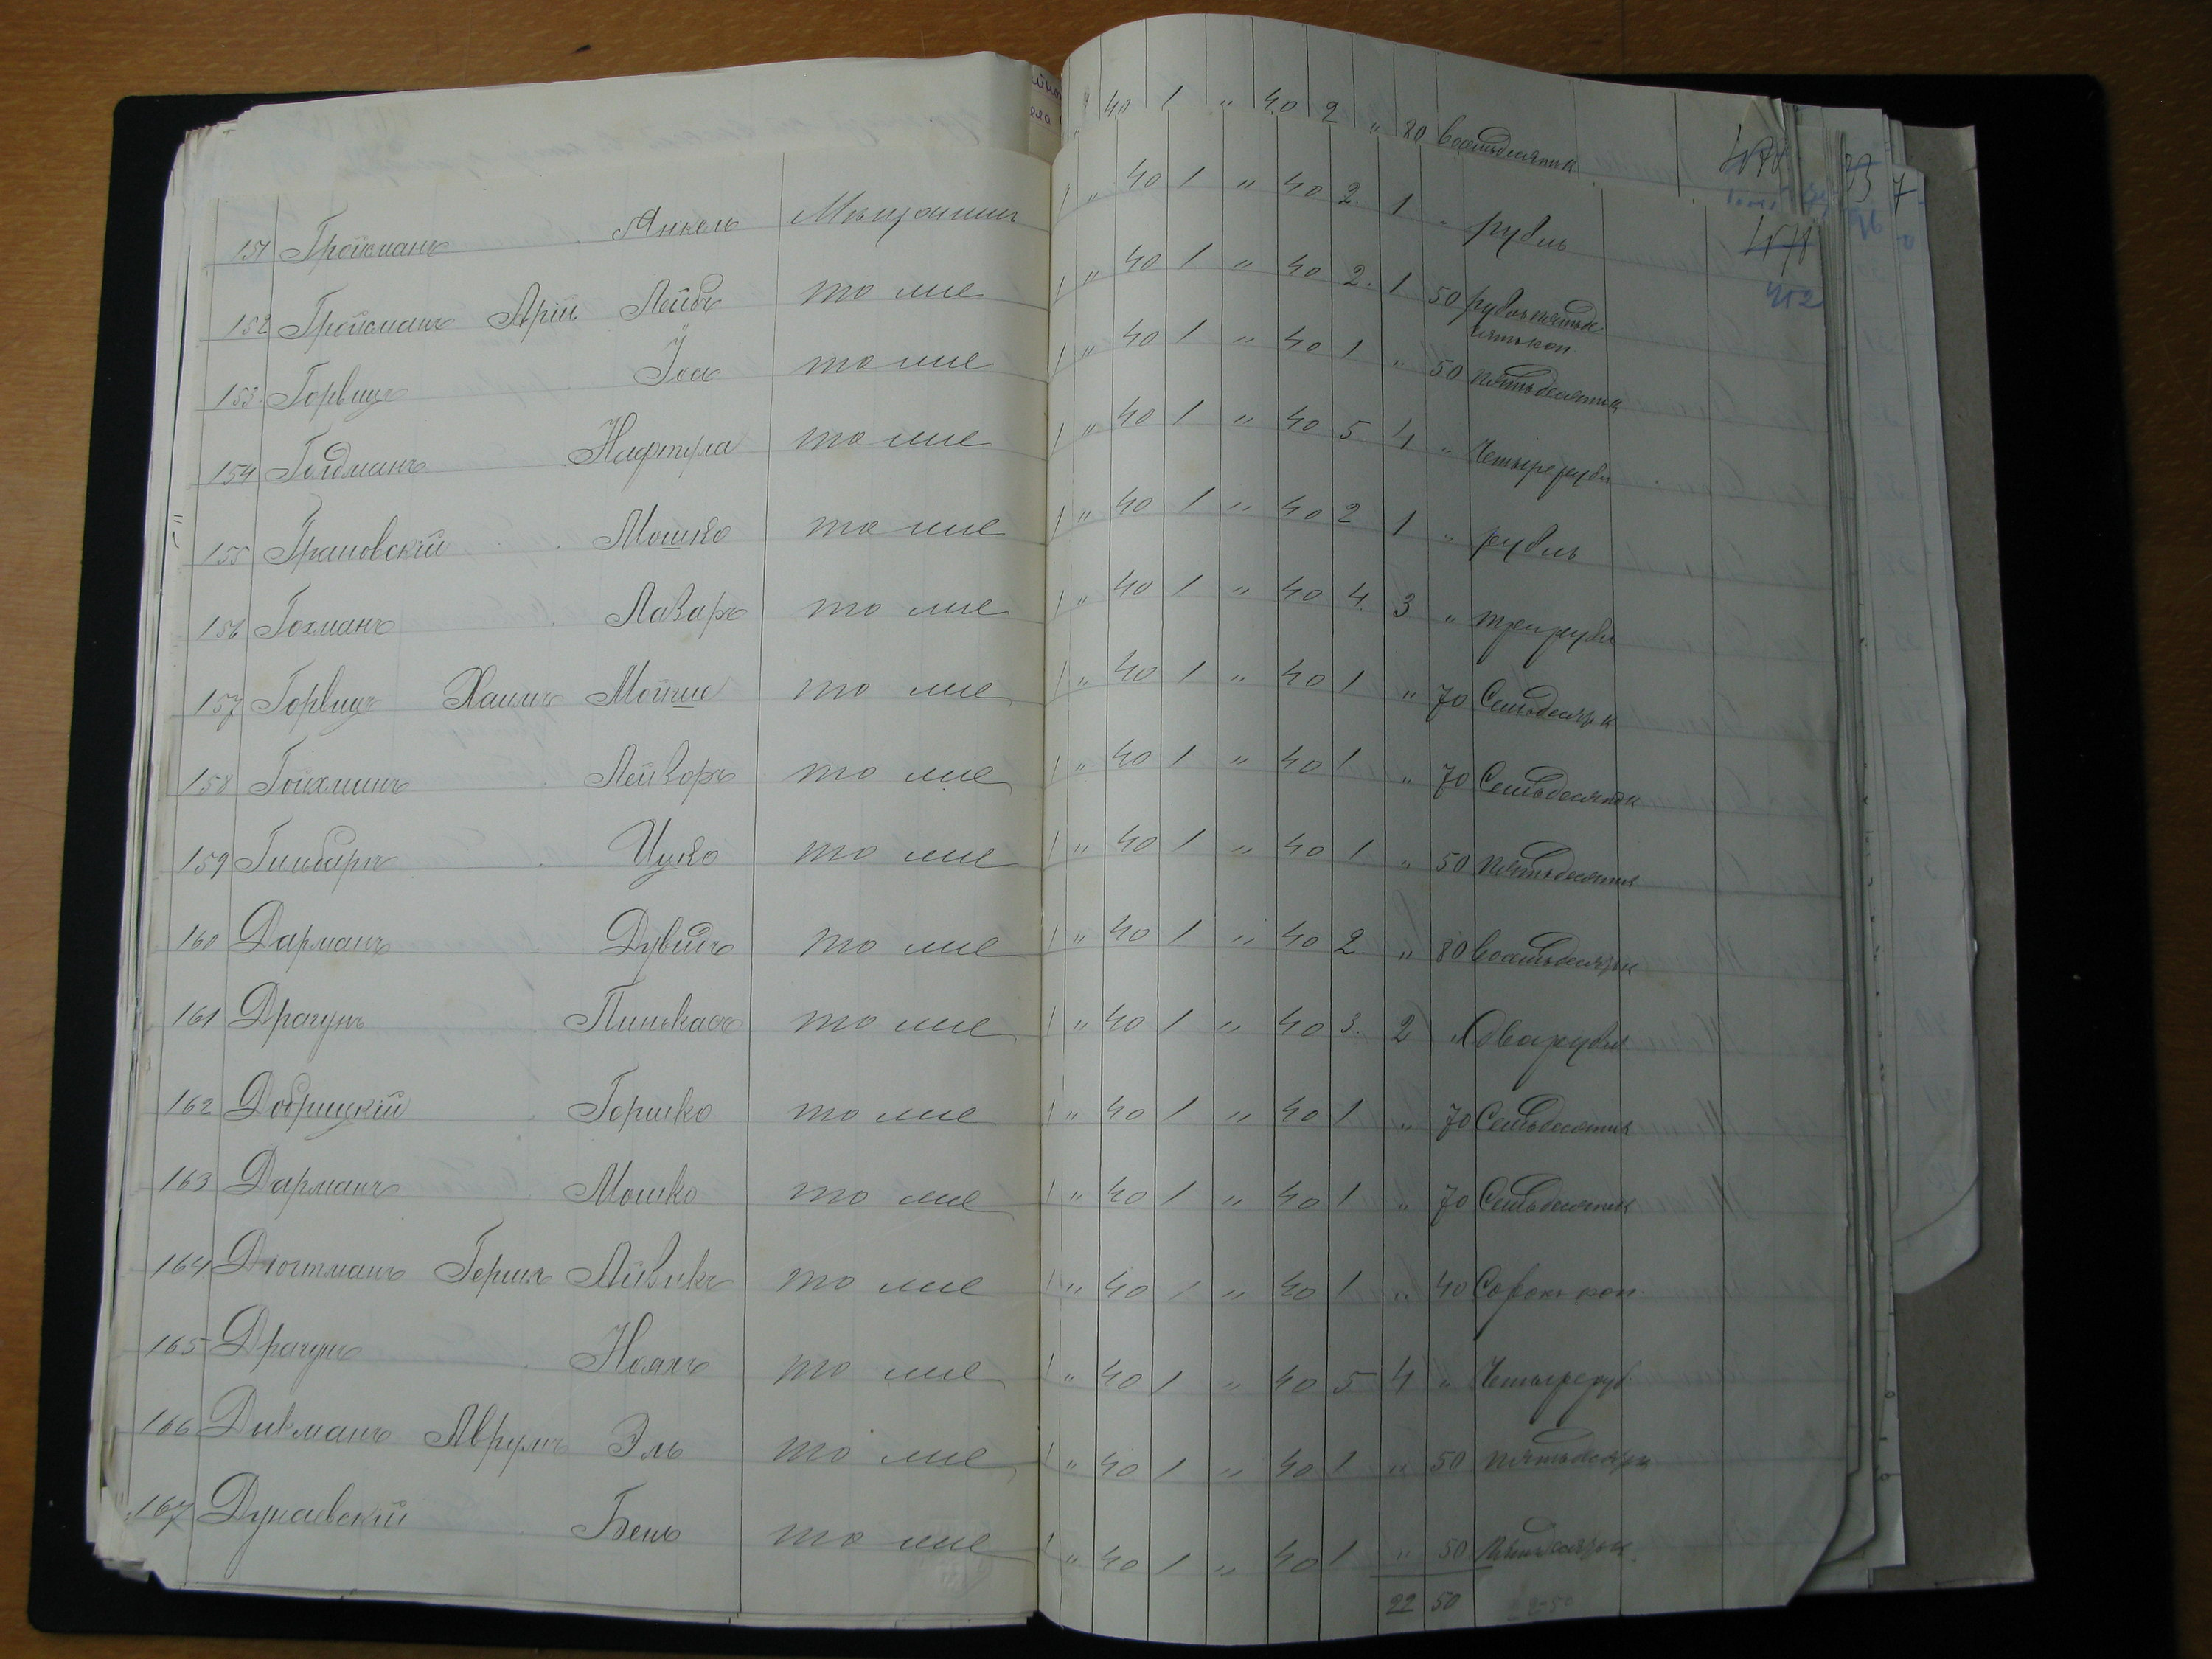 " 40 1 " 40 2 " 80 восемьдесятк
151 Гройсманъ Анкель Мѣщанинъ 1 " 40 1 " 40 2. 1 " рубль
152 Гройсманъ Арій Лейбъ то же 1 " 40 1 " 40 2. 1 50 рубль пятьде
сятькоп.
452
153. Горвицъ Іос то же 1 " 40 1 " 40 1 " 50 пятьдесятик
154 Голдманъ Нафтула то же 1 " 40 1 " 40 5 4 " Четыре рубл
155 Грановскій Мошко то же 1 " 40 1 " 40 2 1 " рубль
156 Гохманъ Лазарь то же 1 " 40 1 " 40 4. 3 " три рубл
157 Горвицъ Хаимъ Мойше то же 1 " 40 1 " 40 1 " 70 Семьдесятьк
158 Гойхманъ Лейзоръ то же 1 " 40 1 " 40 1 " 70 Семьдесятьк
159 Ицко то же 1 " 40 1 " 40 1 " 50 пятьдесятик
160 Дарманъ Дувидъ то же 1 " 40 1 " 40 2. " 80 восемьдесятьк
161 Драгунъ Пинькасъ то же 1 " 40 1 " 40 3. 2 " Два рубля
162 Добрицкій Гершко то же 1 " 40 1 " 40 1 " 70 Семьдесятик
163 Дарманъ Мошко то же 1 " 40 1 " 40 1 " 70 Семьдесятик
164 Гершъ Айзикъ то же 1 " 40 1 " 40 1 " 40 Сорокъ коп.
165 Драгунъ Нояхъ то же 1 " 40 1 " 40 5 4 " Четыре руб.
166 Дикманъ Аврумъ Эль то же " 40 1 " 40 1 " 50 пятьдесятьк
167 Дунаевскій Бень то же 1 " 40 1 " 40 1 " 50 пятьдесятьк.
22 50 22-50